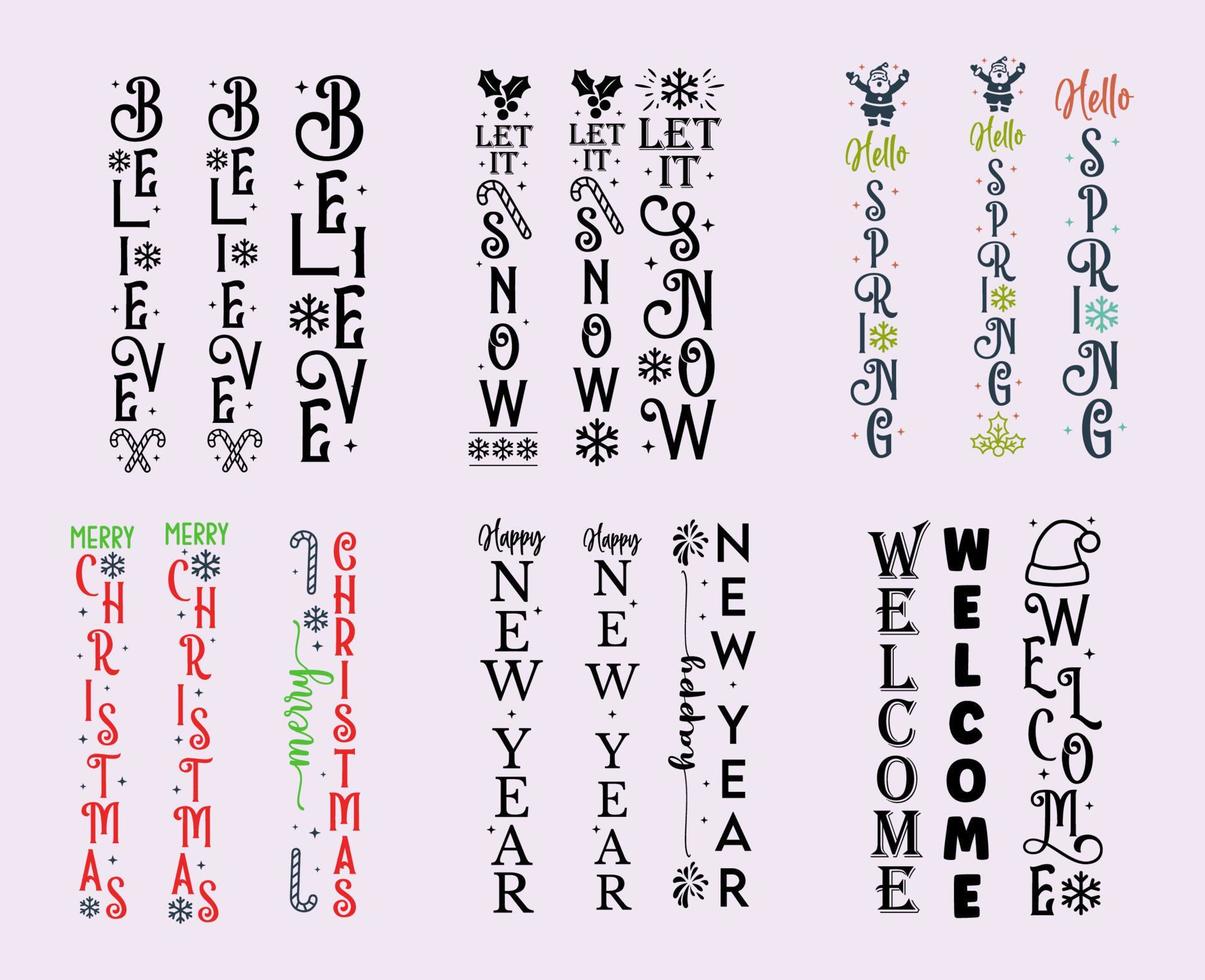 BELIEVE
BELIEVE
BELIEVE
LET
IT
SNOW
LET
IT
SNOW
LET
IT
SNOW
Hello
SPRING
Hello
SPRING
Hello
SPRING
MERRY
CHRISTMAS
MERRY
CHRISTMAS
merry
CHRISTMAS
Happy
NEW YEAR
Happy
NEW YEAR
happy
NEW YEAR
WELCOME
WELCOME
WELCOME